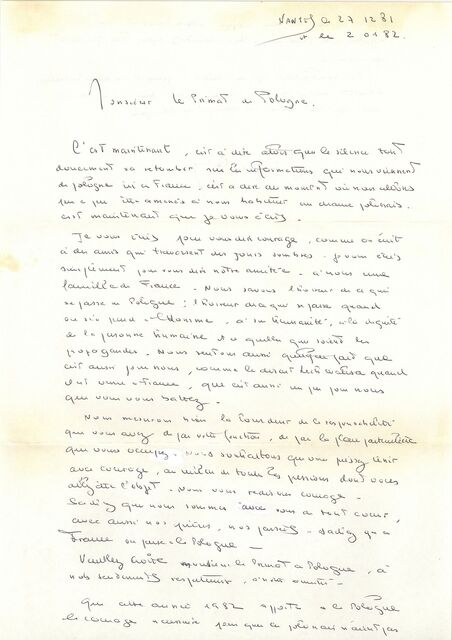 Nantes le 27 12 81
et le 2 01 82.
Monsieur le Primat de Pologne.
C'est maintenant, c'est à dire alors que le silence tout
doucement va retomber sur les informations qui nous viennent
de Pologne ici en France. c'est à dire au moment où nous allons
peu à peu être amenés à nous habituer au drame polonais.
c'est maintenant que je vous écris.
Je vous écris pour vous dire courage, comme on écrit
à des amis qui traversent des jours sombres. je vous écris
simplement pour vous dire notre amitié. à nous une
famille de France. Nous savons l'horreur de ce qui
se passe en Pologne : l'horreur de ce qui se passe quand
on s'en prend à l'Homme, à son humanité, à la dignité
de la personne humaine et ce quelles que soient les
propagandes. Nous sentons aussi quelque part que
c'est aussi pour nous, comme le disait Lech Walesa quand
il est venu en France, que c'est aussi un peu pour nous
que vous vous battez.
Nous mesurons bien la lourdeur de la responsabilité
que vous avez, de par votre fonction, de par la place particulière
que vous occupez. Nous souhaitons que vous puissiez tenir
avec courage, au milieu de toutes les pressions dont vous
allez être l'objet. Nous vous redisons courage.
Sachez que nous sommes avec vous de tout cœur,
avec aussi nos prières, nos pensées. Sachez qu'en
France on pense à la Pologne —
Veuillez croire monsieur le Primat de Pologne, à
nos sentiments respectueux, à notre amitié.
Que cette année 1982 apporte à la Pologne
le courage nécessaire pour que ce polonais n'aient pas